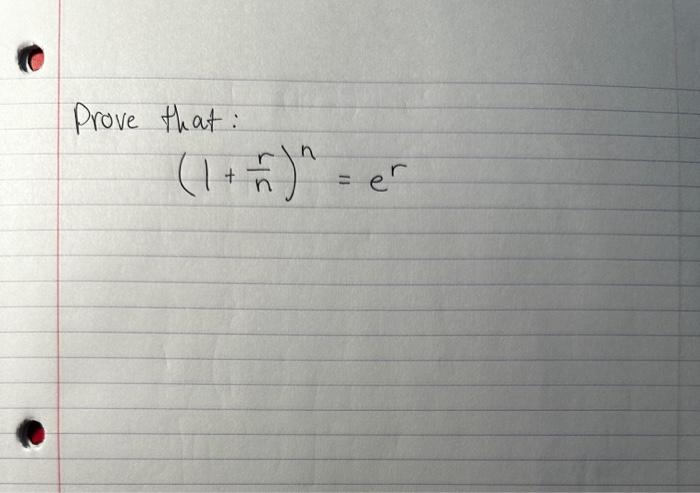 Prove that:
(1 + r/n)^n = e^r